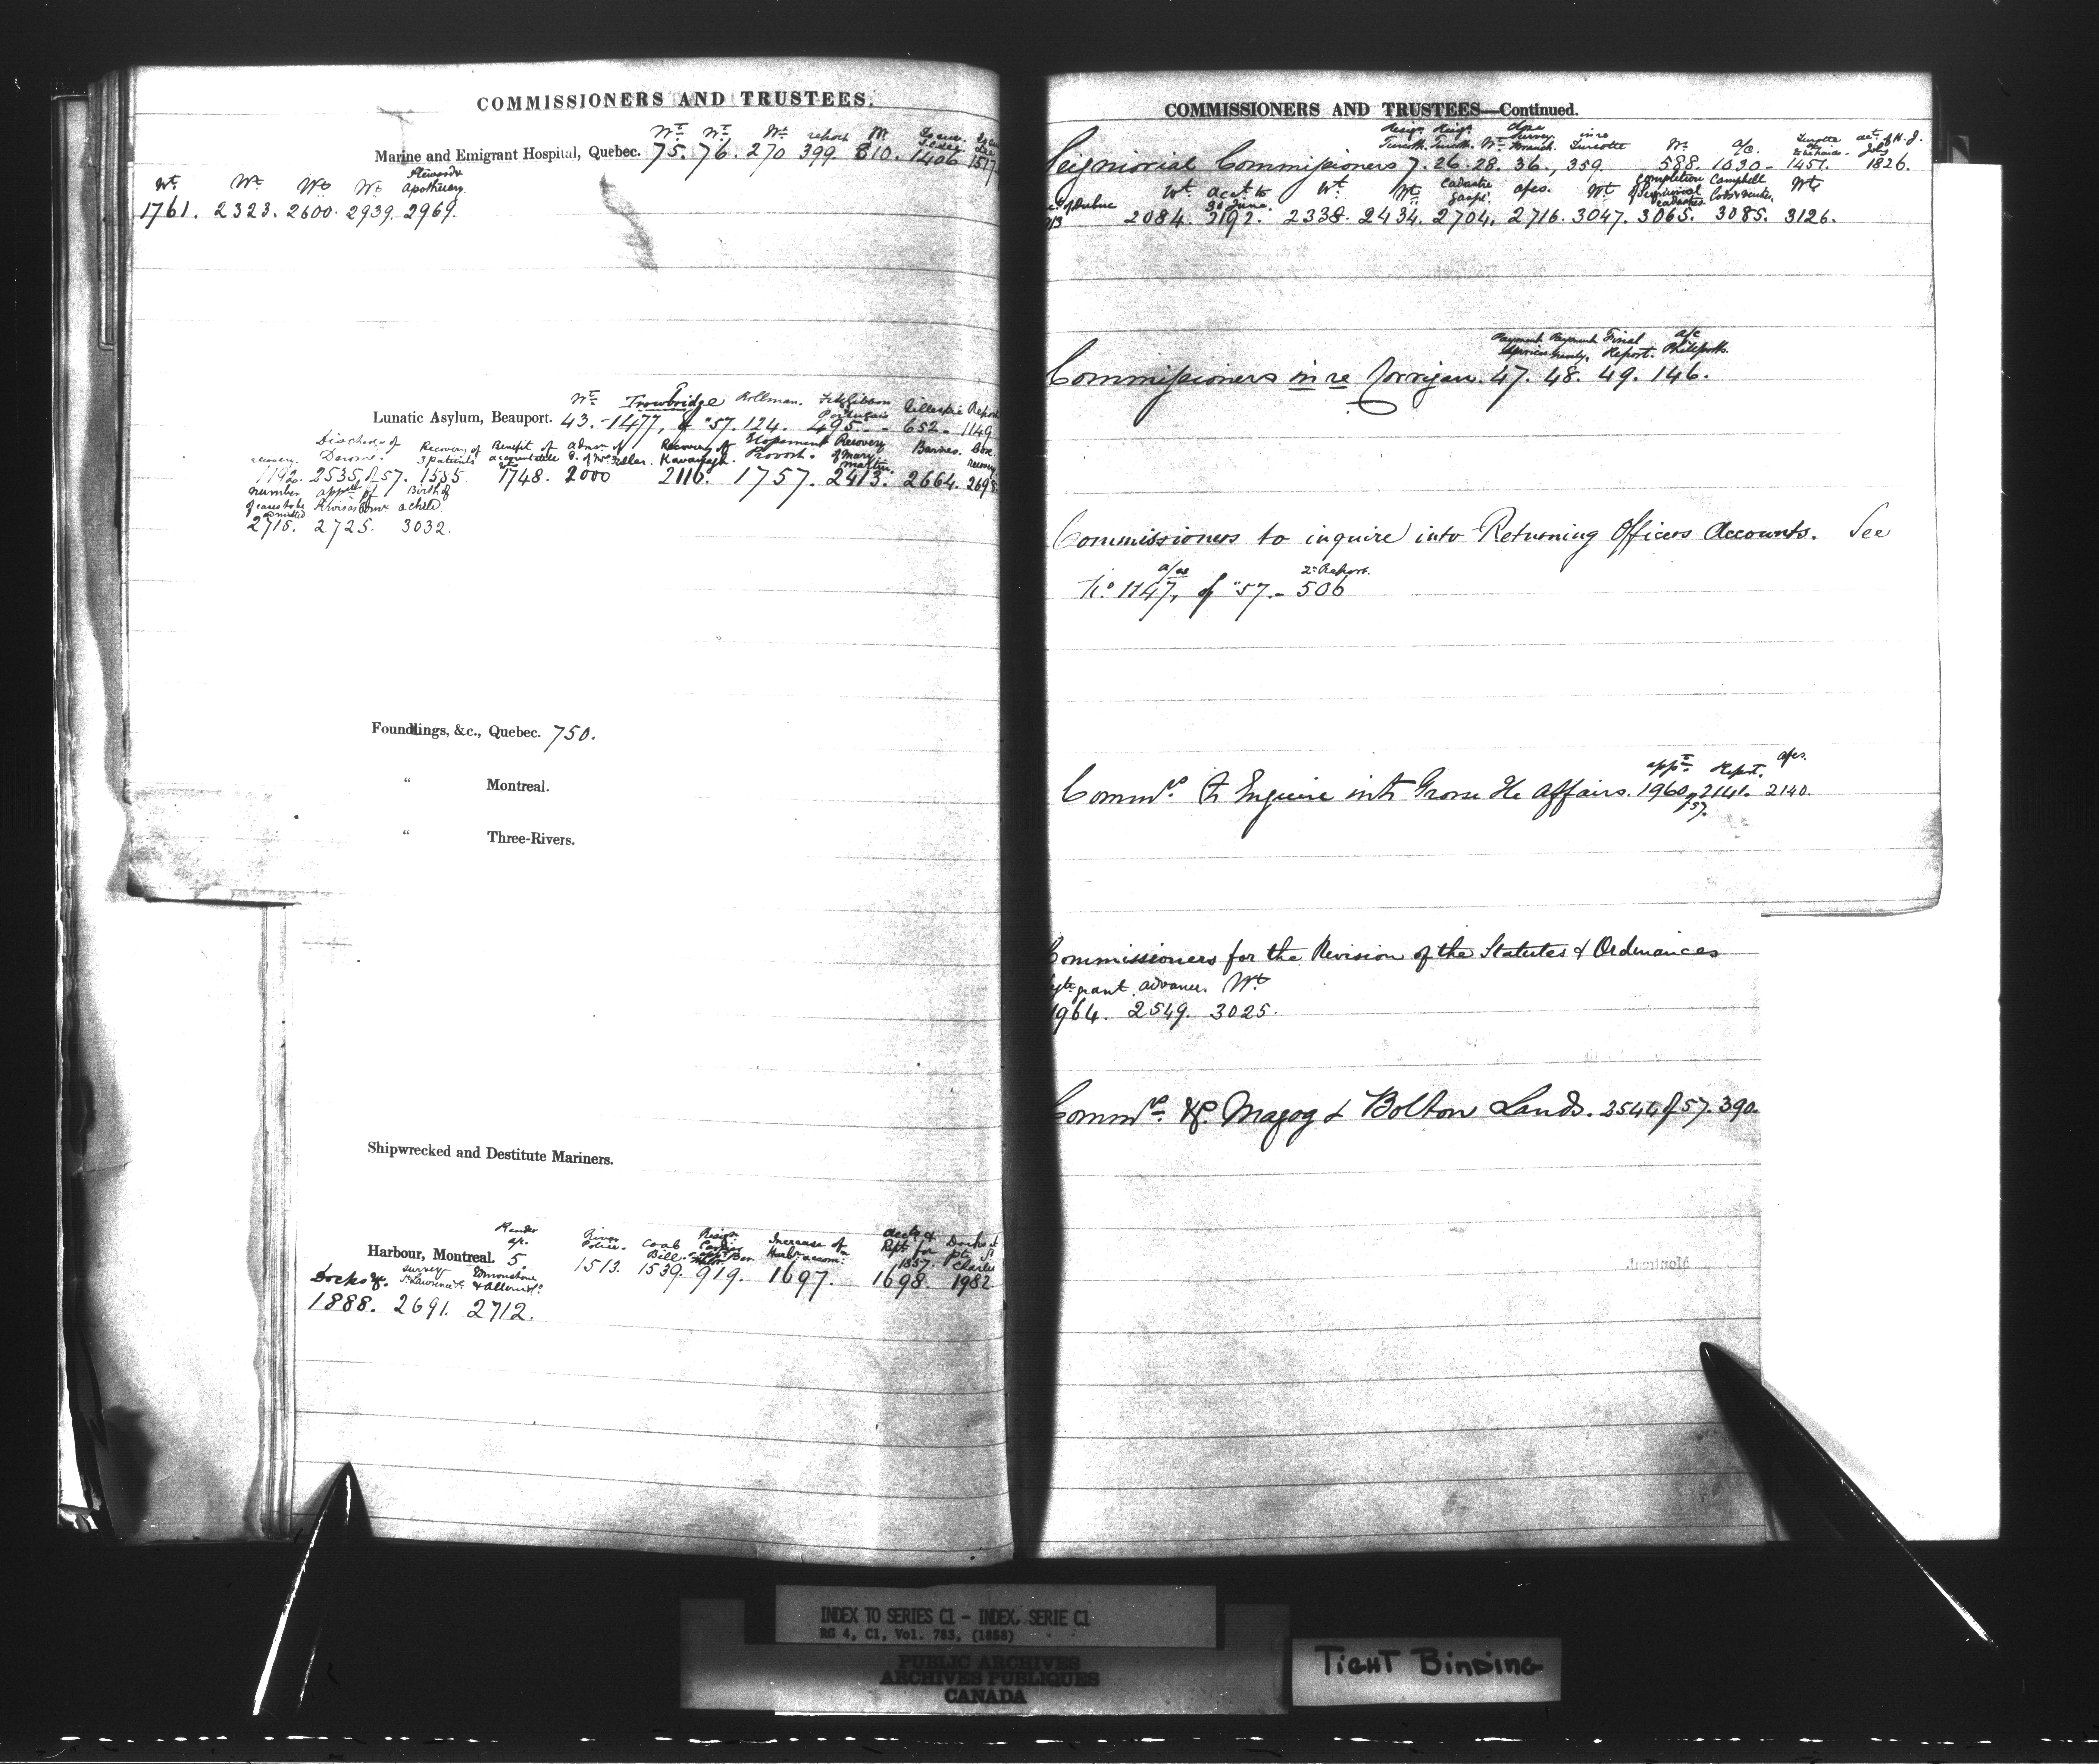 COMMISSIONERS AND TRUSTEES.
Wt. Wt. Wt. report Wt.
Marine and Emigrant Hospital, Quebec. 75. 76. 270 399. 810. 1406 1517.
Wt. Wt. Wt. Wt. Stewards Apothecary.
1761. 2323. 2600. 2939. 2969.
Wt. Trowbridge Rollman. FitzGibbon Portugais Gillespie Report
Lunatic Asylum, Beauport. 43. - 1477, of "57. 124. 495. - 652. 1149
recovery. Discharge of Derome. Recovery of 3 patients Benefit of admn. of Recovery of Kavanagh. Elopement Provost. Recovery of Mary Martin. Barnes. recovery
1192. 2535, of 57. 1555 1748. 2000 2116. 1757. 2413. 2664. 2695.
number of cases to be admitted Birth of a child.
2715. 2725. 3032.
Foundlings, &c., Quebec. 750.
" Montreal.
" Three-Rivers.
Shipwrecked and Destitute Mariners.
River Police. Coab Bill. Increase of Harbr. accom: Accts & Rept. for 1857. Docks at pt. St Charles
Harbour, Montreal. 5. 1513. 1539. 919. 1697. 1698. 1982.
Docks &c. survey St. Lawrence Edmonstone & Allan
1888. 2691. 2712.
COMMISSIONERS AND TRUSTEES—Continued.
Resign. Turcotte. Wt. in re Turcotte Wt. a/c.
Seigniorial Commissioners 7. 26. 28. 36., 359. 588. 1030 - 1451. 1826.
Wt. Acct. to 30 June. Wt. Wt. Cadastre Gaspé. apes. Wt. completion of Seigniorial Cadastres. Campbell Wt.
2084. 2192. 2338. 2434. 2704, 2716. 3047. 3065. 3085. 3126.
Payment Payment Final Report. a/c Philpotts.
Commissioners in re Corrigan. 47. 48. 49. 146.
Commissioners to inquire into Returning Officers Accounts. See
a/cs 2d. Report.
No. 1147, of "57. - 506
appt. Report. apes.
Commrs. to Enquire into Grosse Ile affairs. 1960, of 57. 2141. 2140.
Commissioners for the Revision of the Statutes & Ordinances
grant. advance. Wt.
1964. 2549. 3025.
Commrs. &c. Magog & Bolton Lands. 2544 of 57. 390.
INDEX TO SERIES C1 - INDEX, SERIE C1
RG 4, C1, Vol. 783, (1858)
PUBLIC ARCHIVES
ARCHIVES PUBLIQUES
CANADA
TIGHT BINDING